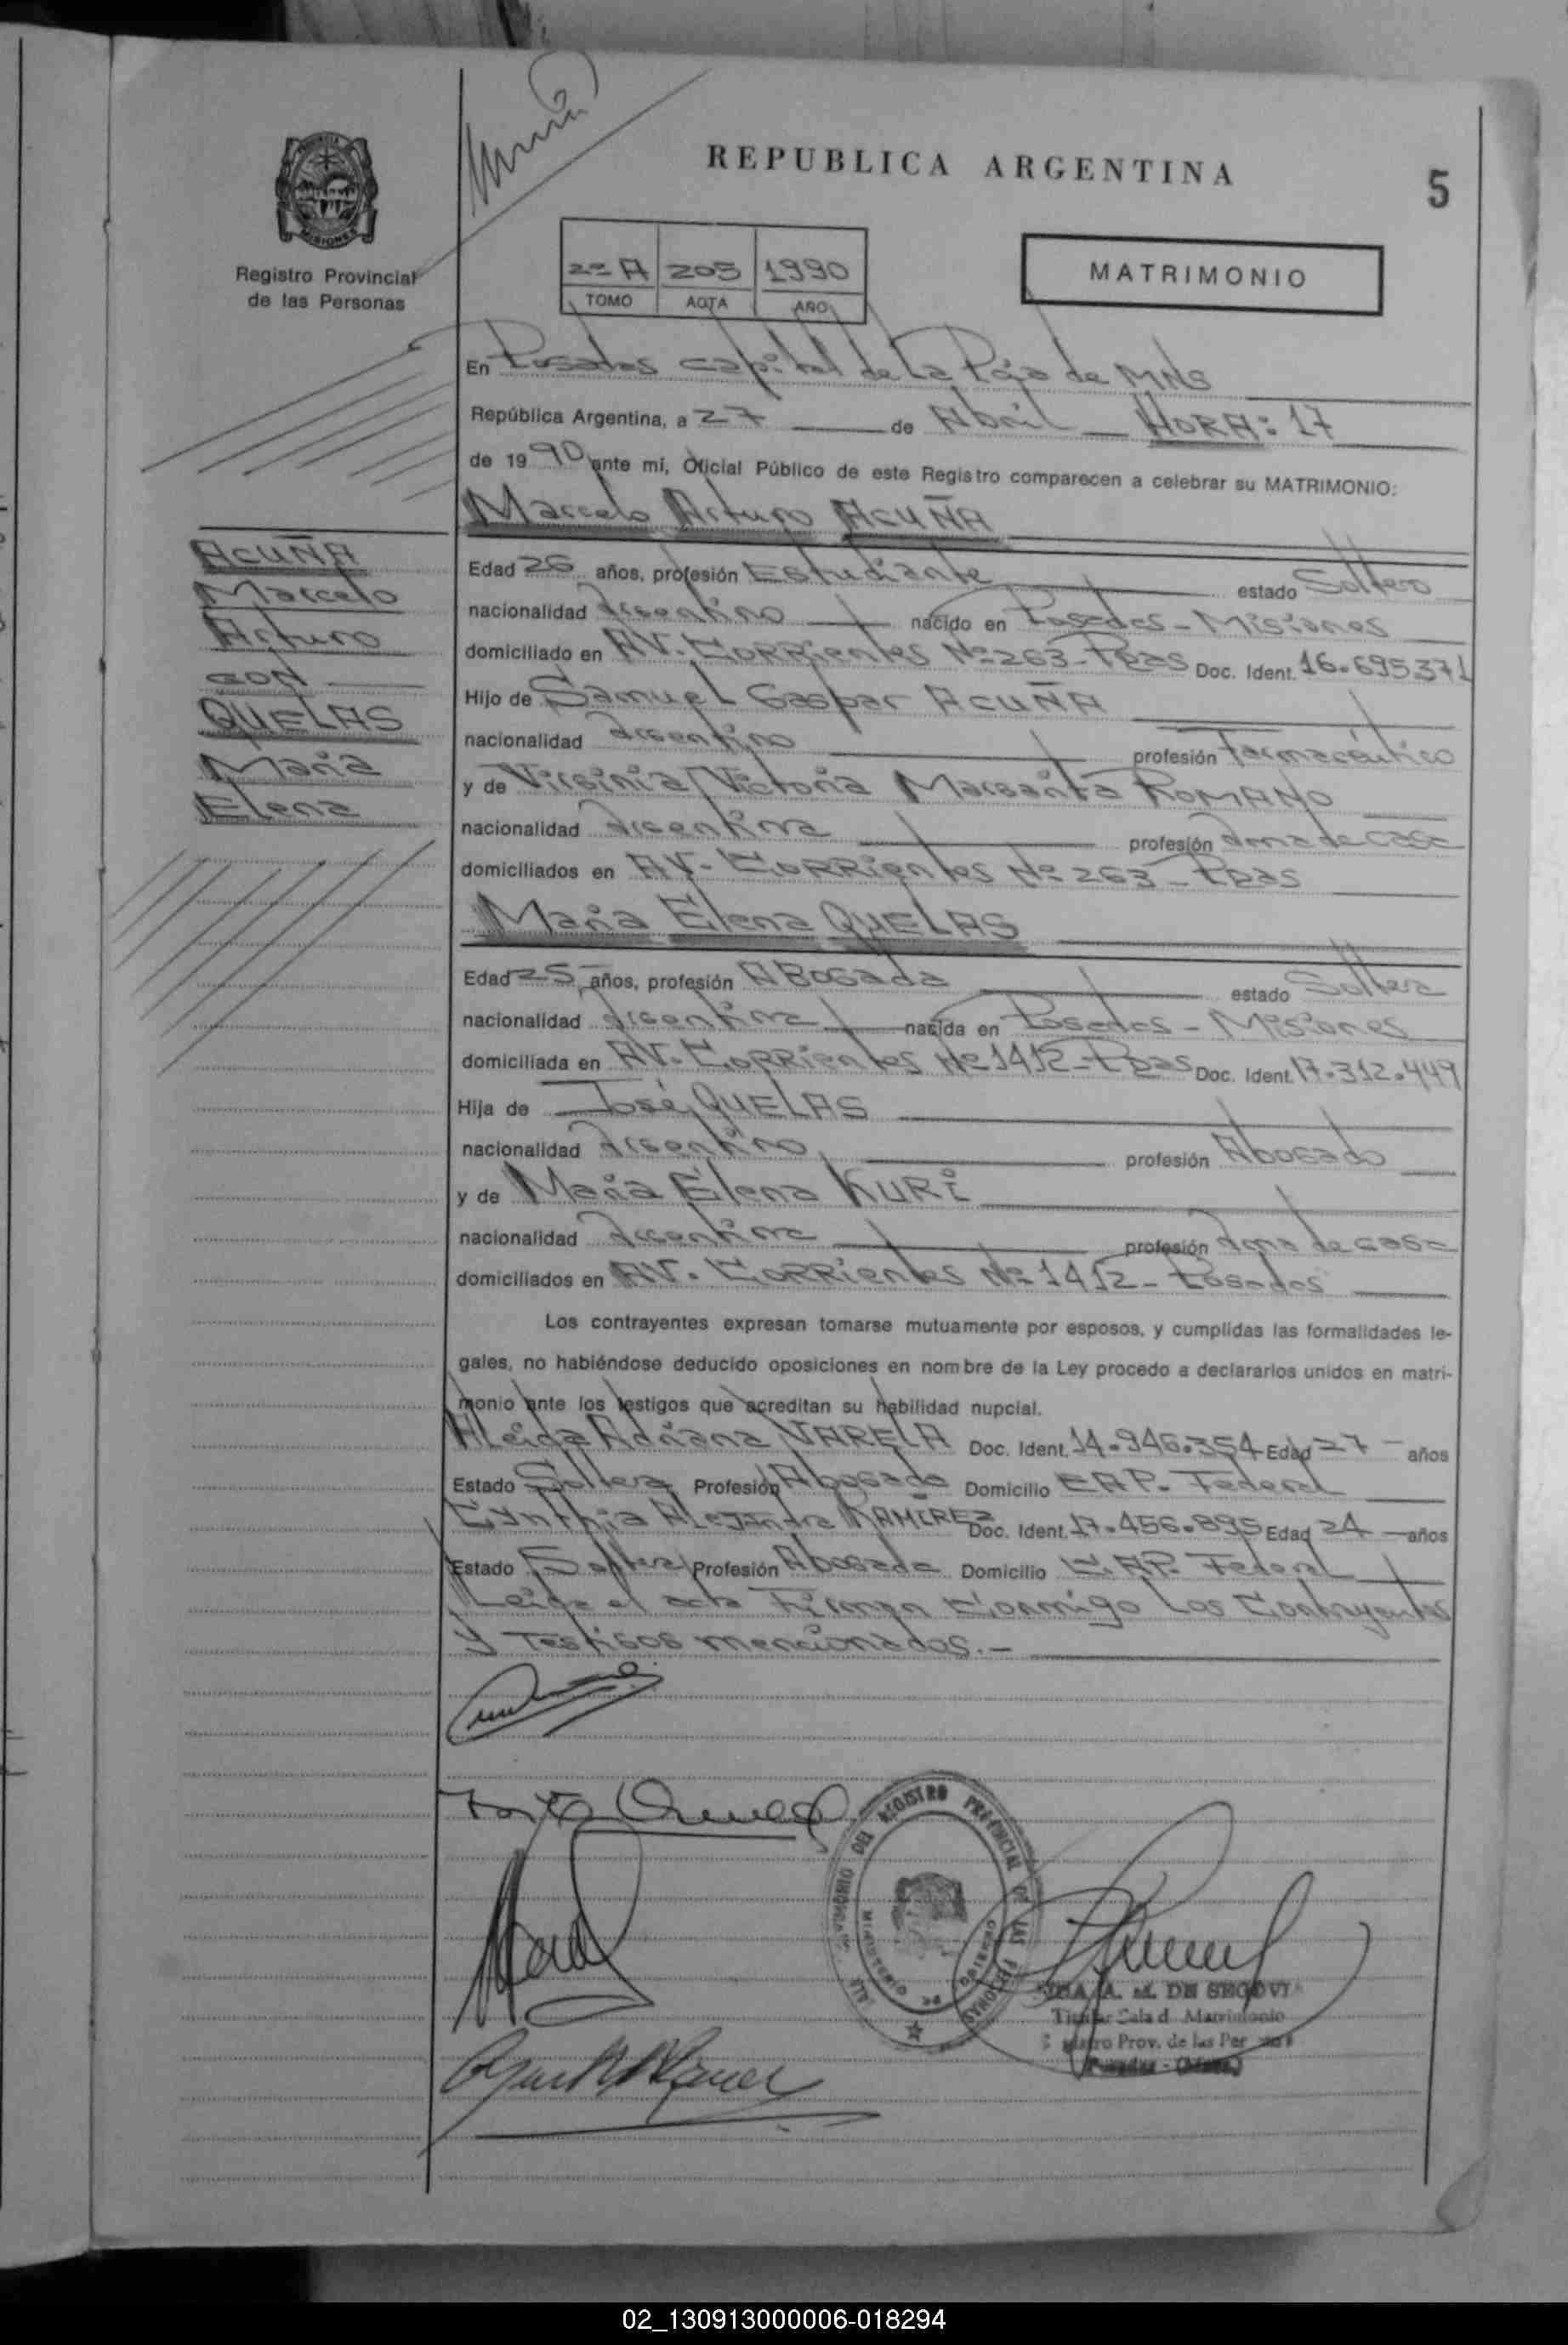 REPUBLICA ARGENTINA
5
MISIONES
Registro Provincial
de las Personas
2º A 205 1990
TOMO ACTA AÑO
MATRIMONIO
En Posadas capital de La Pcia de MNS
República Argentina, a 27 de Abril HORA: 17
de 1990 ante mí, Oficial Público de este Registro comparecen a celebrar su MATRIMONIO:
Marcelo Arturo ACUÑA
ACUÑA
Marcelo
Arturo
con
QUELAS
Maria
Elena
Edad 26 años, profesión Estudiante estado Soltero
nacionalidad Argentino nacido en Posadas - Misiones
domiciliado en AV. Corrientes Nº 263 - Pdas Doc. Ident. 16.695.371
Hijo de Samuel Gaspar ACUÑA
nacionalidad Argentino profesión Farmacéutico
y de Virginia Victoria Margarita ROMANO
nacionalidad Argentina profesión Ama de casa
domiciliados en AV. Corrientes Nº 263 - Pdas
Maria Elena QUELAS
Edad 25 años, profesión Abogada estado Soltera
nacionalidad Argentina nacida en Posadas - Misiones
domiciliada en AV. Corrientes Nº 1412 - Pdas Doc. Ident. 17.312.449
Hija de José QUELAS
nacionalidad Argentino profesión Abogado
y de Maria Elena KURI
nacionalidad Argentina profesión Ama de casa
domiciliados en AV. Corrientes Nº 1412 - Posadas
Los contrayentes expresan tomarse mutuamente por esposos, y cumplidas las formalidades le-
gales, no habiéndose deducido oposiciones en nombre de la Ley procedo a declararlos unidos en matri-
monio ante los testigos que acreditan su habilidad nupcial.
Aleida Adriana VARELA Doc. Ident. 14.946.354 Edad 27 años
Estado Soltera Profesión Abogada Domicilio CAP. Federal
Cynthia Alejandra RAMÍREZ Doc. Ident. 17.456.895 Edad 24 años
Estado Soltera Profesión Abogada Domicilio C.AP. Federal
Leida el acta Firman Conmigo Los Contrayentes
y Testigos mencionados.-
DEL REGISTRO PROVINCIAL DE LAS PERSONAS
MINISTERIO DE GOBIERNO
A. M. DE SEGOVIA
Titular Sala d Matrimonio
Prov. de las Per
02_130913000006-018294